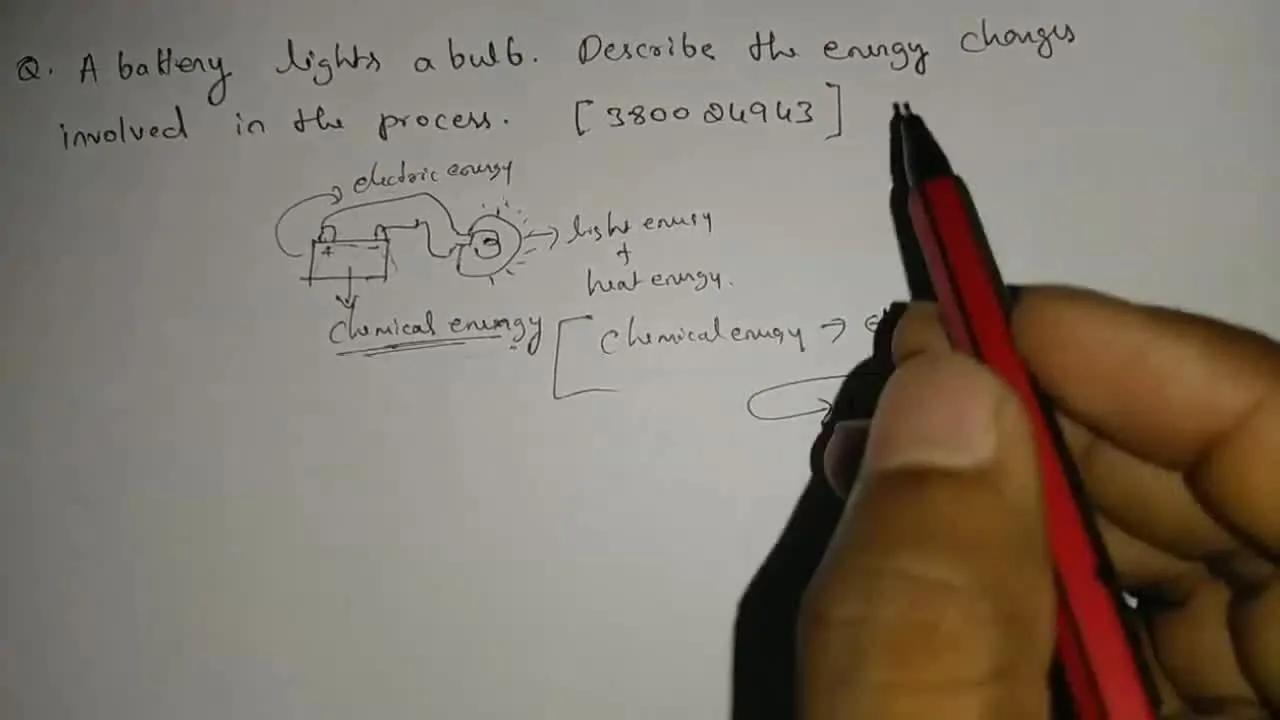 Q. A battery lights a bulb. Describe the energy changes
involved in the process. [380024943]
electric energy
+ -
light energy
+
heat energy.
chemical energy
Chemical energy → e